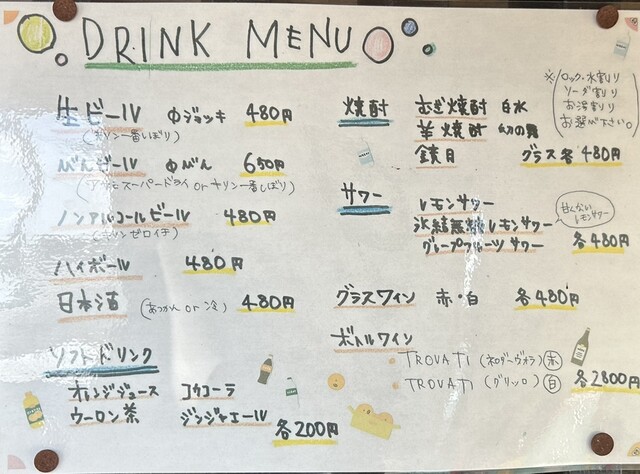 DRINK MENU
生ビール 中ジョッキ 480円
(キリン一番しぼり)
びんビール 中びん 650円
(アサヒスーパードライ or キリン一番しぼり)
ノンアルコールビール 480円
(キリンゼロイチ)
ハイボール 480円
日本酒 (あつかん or 冷) 480円
ソフトドリンク
オレンジジュース コカコーラ
ウーロン茶 ジンジャエール 各200円
焼酎 むぎ焼酎 白水
芋焼酎 幻の露
鏡月 グラス各480円
※(ロック・水割り
ソーダ割り
お湯割り
お選び下さい。)
サワー レモンサワー
氷結無糖レモンサワー
甘くない
レモンサワー
グレープフルーツサワー 各480円
グラスワイン 赤・白 各480円
ボトルワイン
TROVATI (ネロダーヴォラ) 赤
TROVATI (グリッロ) 白 各2800円